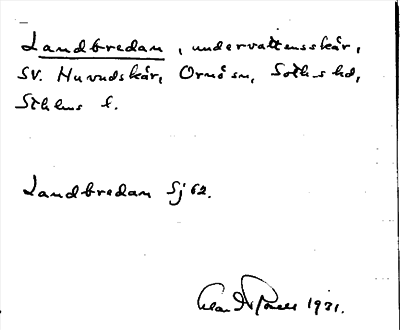 Landbredan, undervattensskär,
SV. Huvudskär, Ornö sn, Sotholms hd,
Sthlms l.
Landbredan Sj 62.
1931.